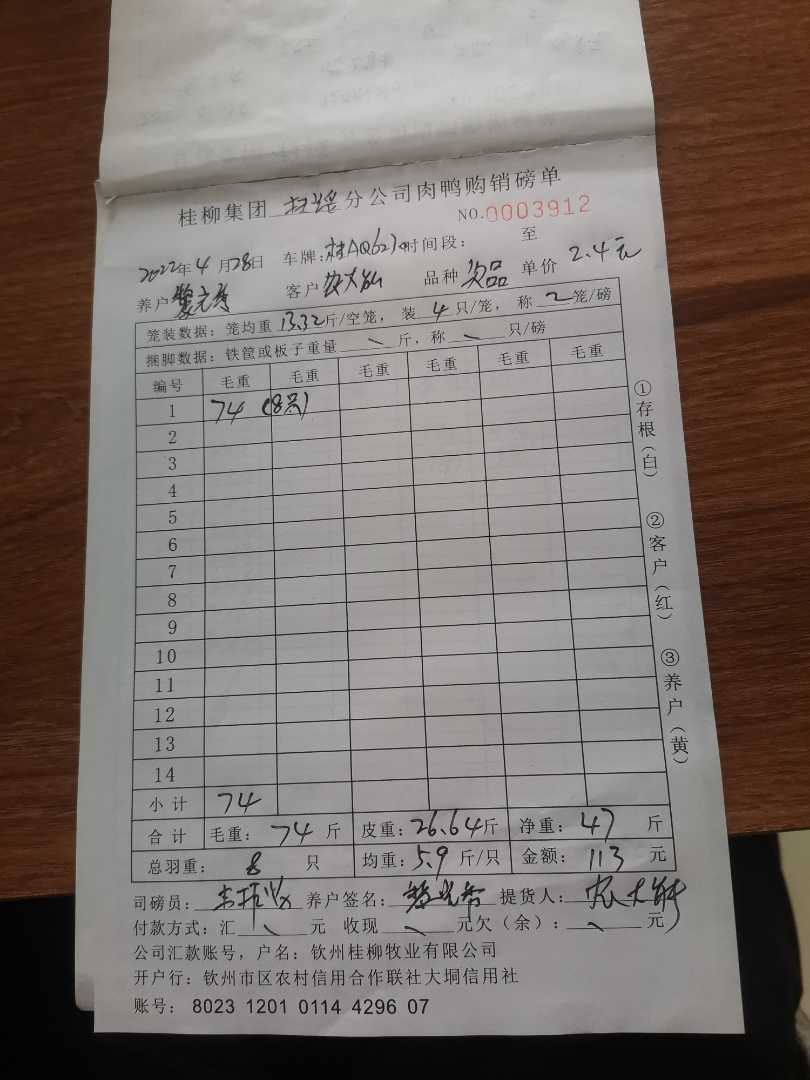 桂柳集团 分公司肉鸭购销磅单
NO.0003912
2022年4月28日 车牌：桂AQ627 时间段： 至
养户 客户 农大 品种 次品 单价 2.4元
笼装数据：笼均重 13.32 斤/空笼， 装 4 只/笼， 称 2 笼/磅
捆脚数据：铁筐或板子重量 \ 斤，称 \ 只/磅
编号 毛重 毛重 毛重 毛重 毛重 毛重
1 74 (8只)
2
3
4
5
6
7
8
9
10
11
12
13
14
小计 74
合计 毛重：74 斤 皮重：26.64 斤 净重：47 斤
总羽重： 8 只 均重：5.9 斤/只 金额：113 元
司磅员： 养户签名： 提货人：农大
付款方式：汇 \ 元 收现 \ 元欠（余）： \ 元
公司汇款账号，户名：钦州桂柳牧业有限公司
开户行：钦州市区农村信用合作联社大垌信用社
账号： 8023 1201 0114 4296 07
①存根（白）
②客户（红）
③养户（黄）